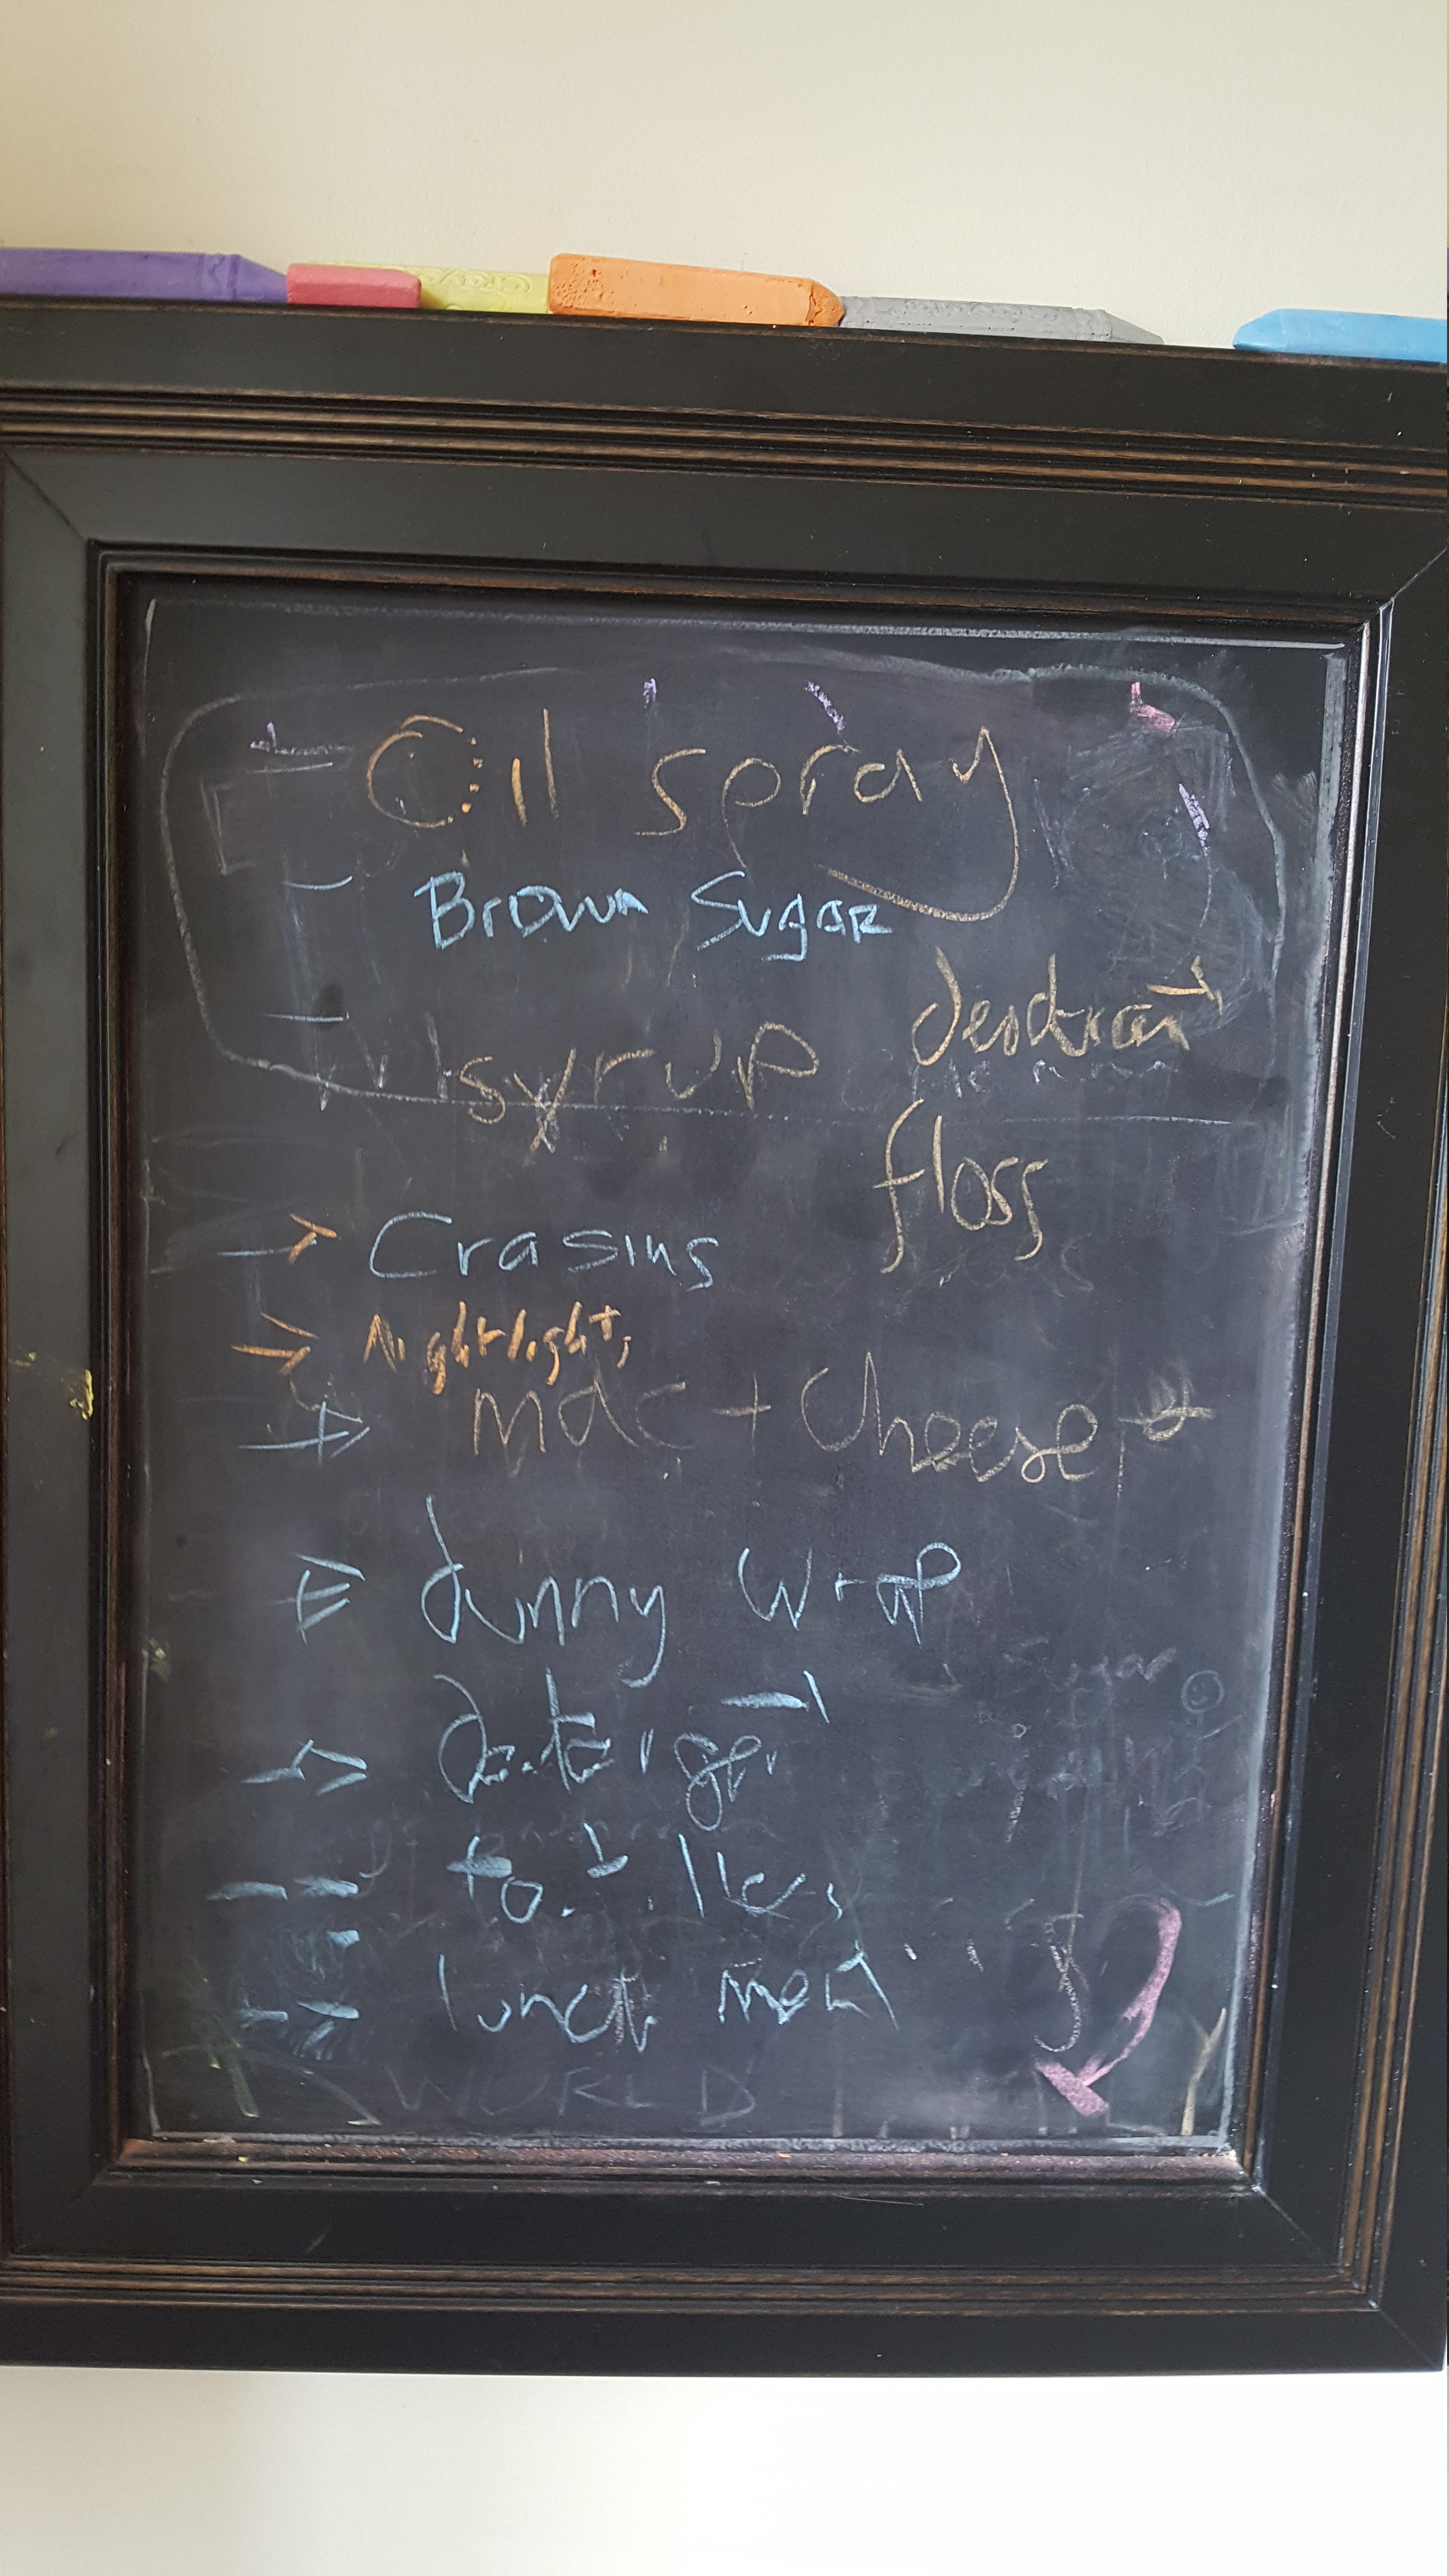 Oil spray
Brown Sugar
syrup
deodrant
floss
Crasins
Nightlight,
mac + Cheese
dunny wrap
lunch meat
WORLD